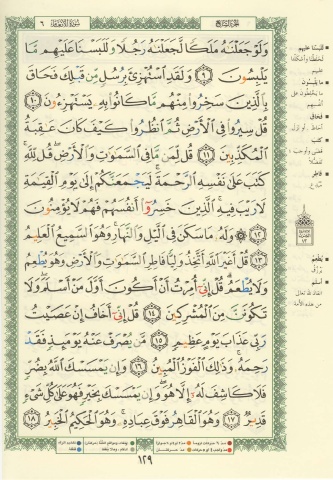 سورة الأنعام ٦
الجزء السابع
وَلَوْ جَعَلْنَٰهُ مَلَكًا لَّجَعَلْنَٰهُ رَجُلًا وَلَلَبَسْنَا عَلَيْهِم مَّا
يَلْبِسُونَ ٩ وَلَقَدِ ٱسْتُهْزِئَ بِرُسُلٍ مِّن قَبْلِكَ فَحَاقَ
بِٱلَّذِينَ سَخِرُوا۟ مِنْهُم مَّا كَانُوا۟ بِهِۦ يَسْتَهْزِءُونَ ١٠
قُلْ سِيرُوا۟ فِى ٱلْأَرْضِ ثُمَّ ٱنظُرُوا۟ كَيْفَ كَانَ عَٰقِبَةُ
ٱلْمُكَذِّبِينَ ١١ قُل لِّمَن مَّا فِى ٱلسَّمَٰوَٰتِ وَٱلْأَرْضِ قُل لِّلَّهِ
كَتَبَ عَلَىٰ نَفْسِهِ ٱلرَّحْمَةَ لَيَجْمَعَنَّكُمْ إِلَىٰ يَوْمِ ٱلْقِيَٰمَةِ
لَا رَيْبَ فِيهِ ٱلَّذِينَ خَسِرُوٓا۟ أَنفُسَهُمْ فَهُمْ لَا يُؤْمِنُونَ
١٢ وَلَهُۥ مَا سَكَنَ فِى ٱلَّيْلِ وَٱلنَّهَارِ وَهُوَ ٱلسَّمِيعُ ٱلْعَلِيمُ
١٣ قُلْ أَغَيْرَ ٱللَّهِ أَتَّخِذُ وَلِيًّا فَاطِرِ ٱلسَّمَٰوَٰتِ وَٱلْأَرْضِ وَهُوَ يُطْعِمُ
وَلَا يُطْعَمُ قُلْ إِنِّىٓ أُمِرْتُ أَنْ أَكُونَ أَوَّلَ مَنْ أَسْلَمَ وَلَا
تَكُونَنَّ مِنَ ٱلْمُشْرِكِينَ ١٤ قُلْ إِنِّىٓ أَخَافُ إِنْ عَصَيْتُ
رَبِّى عَذَابَ يَوْمٍ عَظِيمٍ ١٥ مَّن يُصْرَفْ عَنْهُ يَوْمَئِذٍ فَقَدْ
رَحِمَهُۥ وَذَٰلِكَ ٱلْفَوْزُ ٱلْمُبِينُ ١٦ وَإِن يَمْسَسْكَ ٱللَّهُ بِضُرٍّ
فَلَا كَاشِفَ لَهُۥٓ إِلَّا هُوَ وَإِن يَمْسَسْكَ بِخَيْرٍ فَهُوَ عَلَىٰ كُلِّ شَىْءٍ
قَدِيرٌ ١٧ وَهُوَ ٱلْقَاهِرُ فَوْقَ عِبَادِهِۦ وَهُوَ ٱلْحَكِيمُ ٱلْخَبِيرُ ١٨
للبسنا عليهم
ما يلبسون
فحاق
كتب
فاطر
يُطعم
أسلم
١٢٩